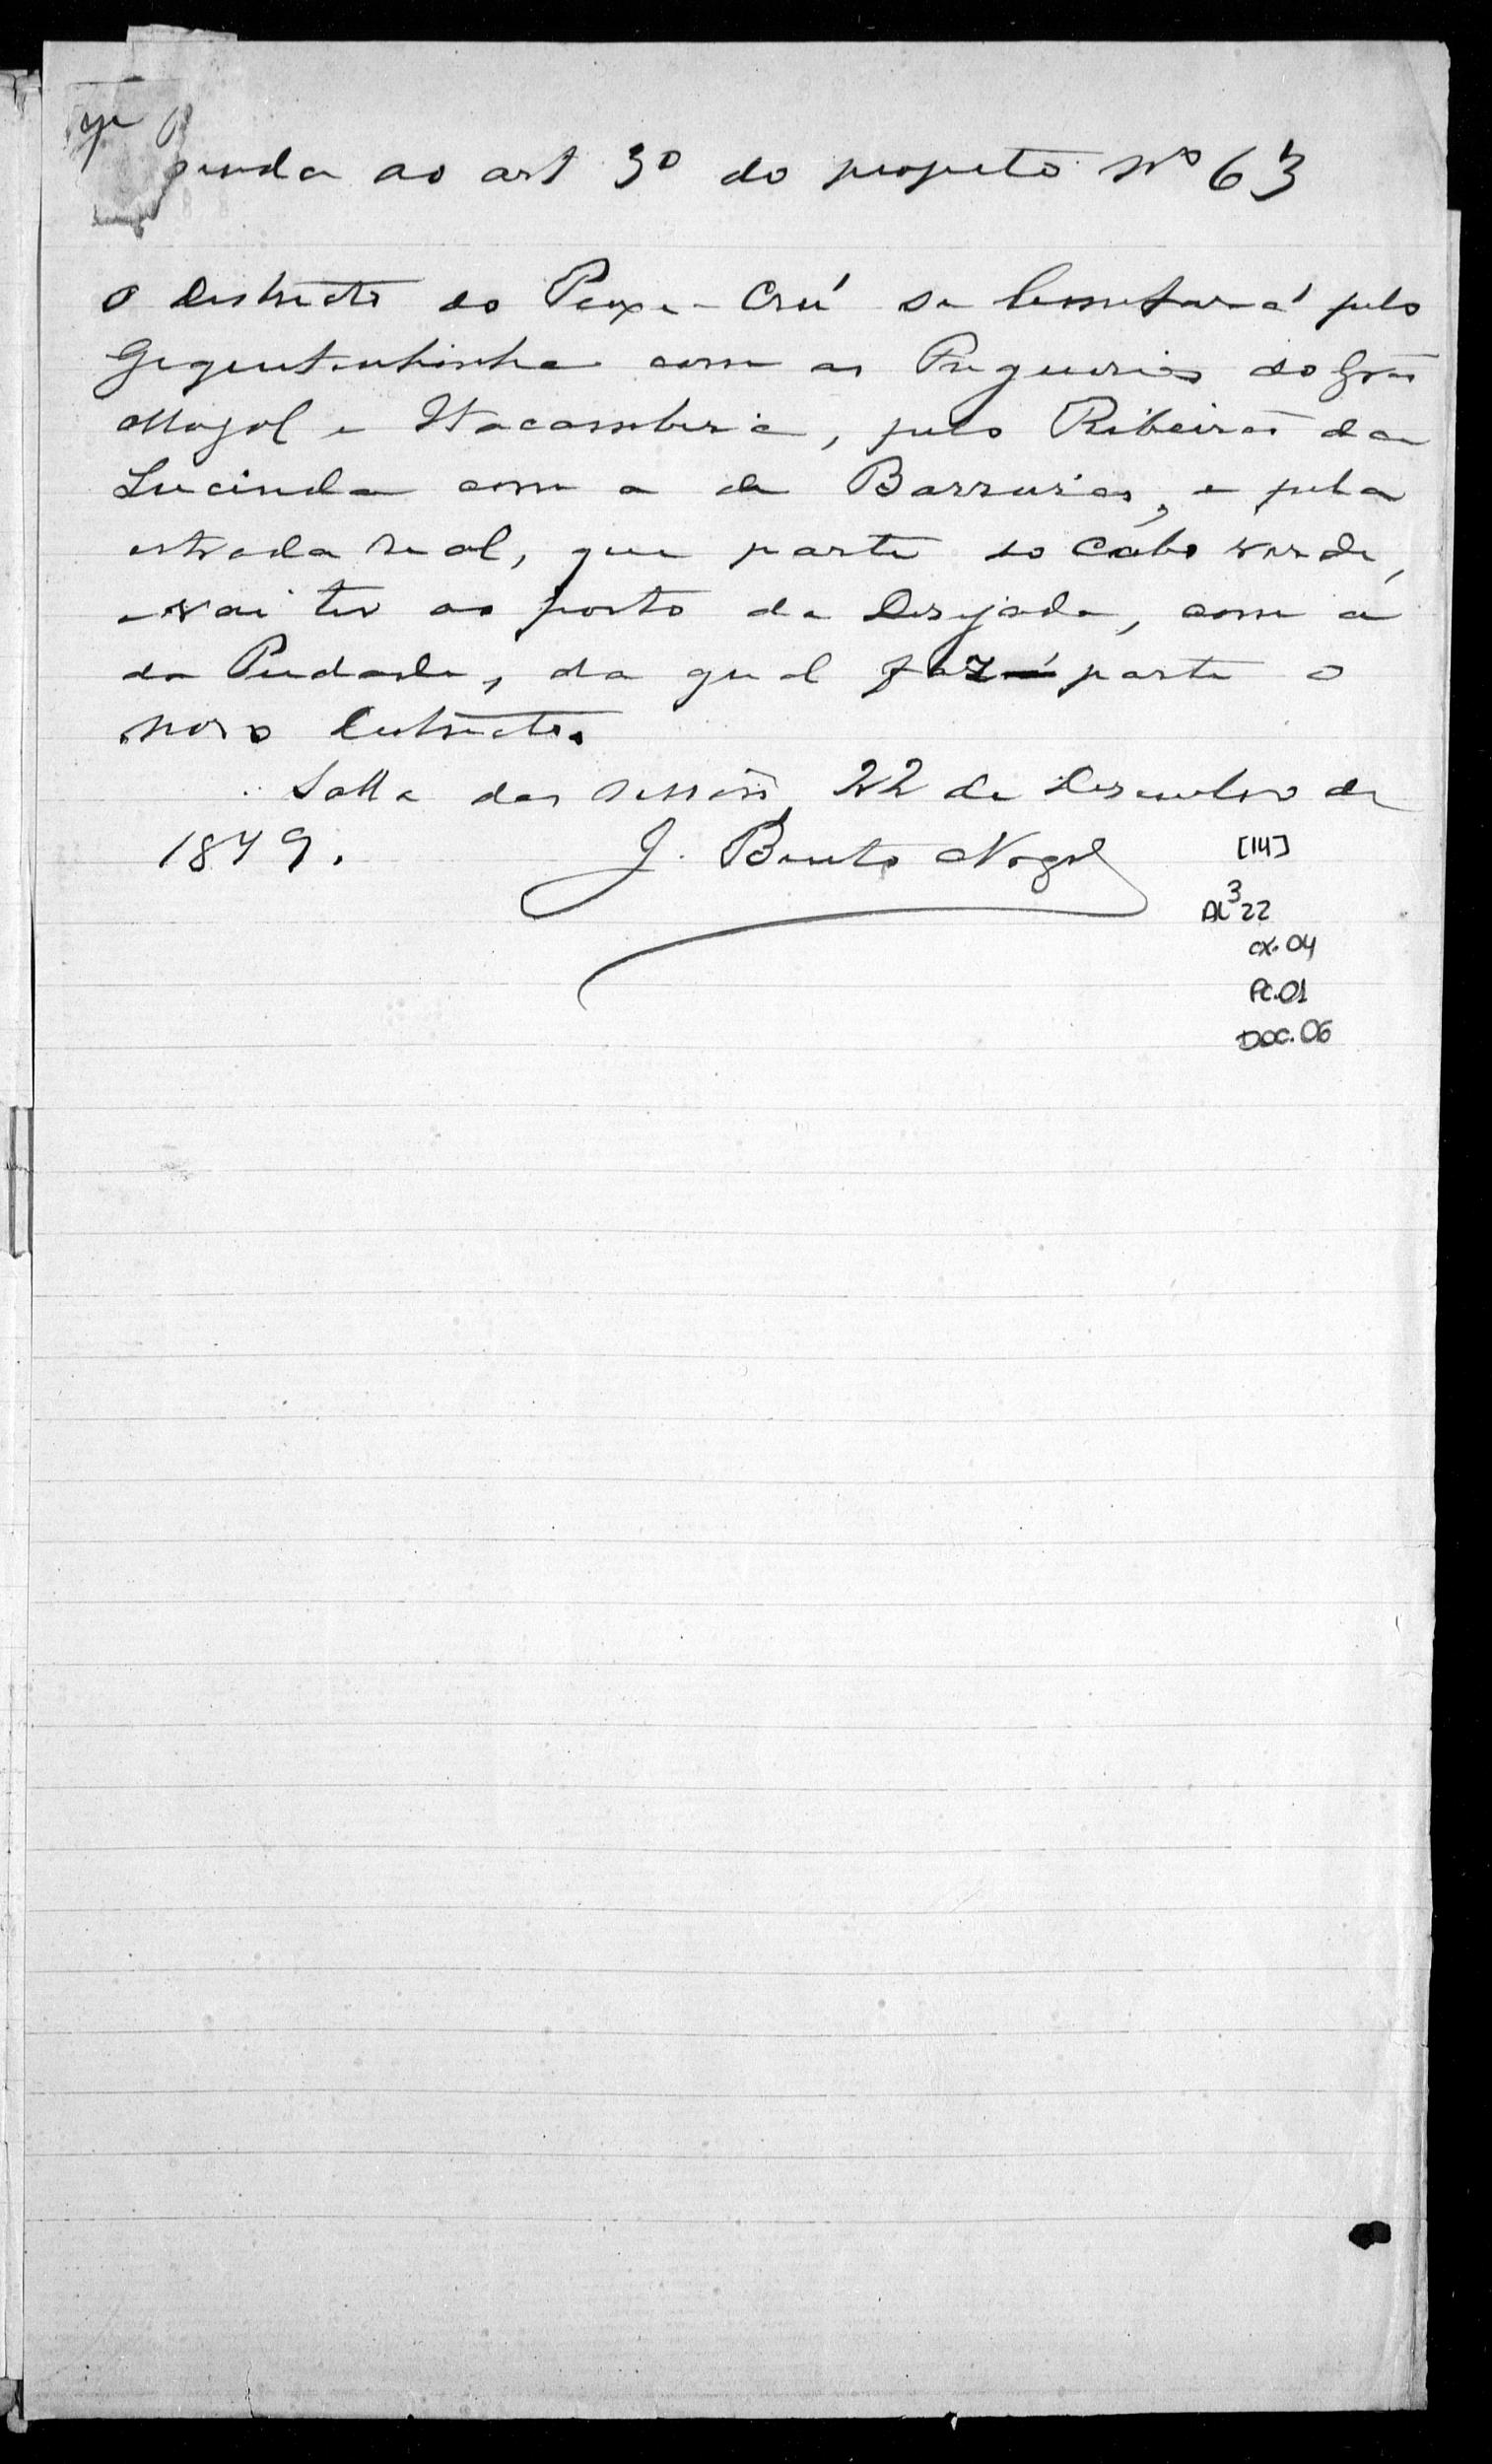 enda ao art 3º do projecto Nº 63
O Districto do Peixe-Crú se limitará pelo
Gequitinhonha com as Freguesias do Grão
Mogol e Itacambira, pelo Ribeirão da
Lucinda com a de Barreiras, e pela
estrada real, que parte do Cabo verde,
e vai ter ao porto da Desejada, com a
da Piedade, da qual faz parte o
novo Districto.
Salla das sessões, 22 de Desembro de
1879.
J. Bento Nogrª
[14]
AL³ 22
cx. 04
PC. 01
DOC. 06